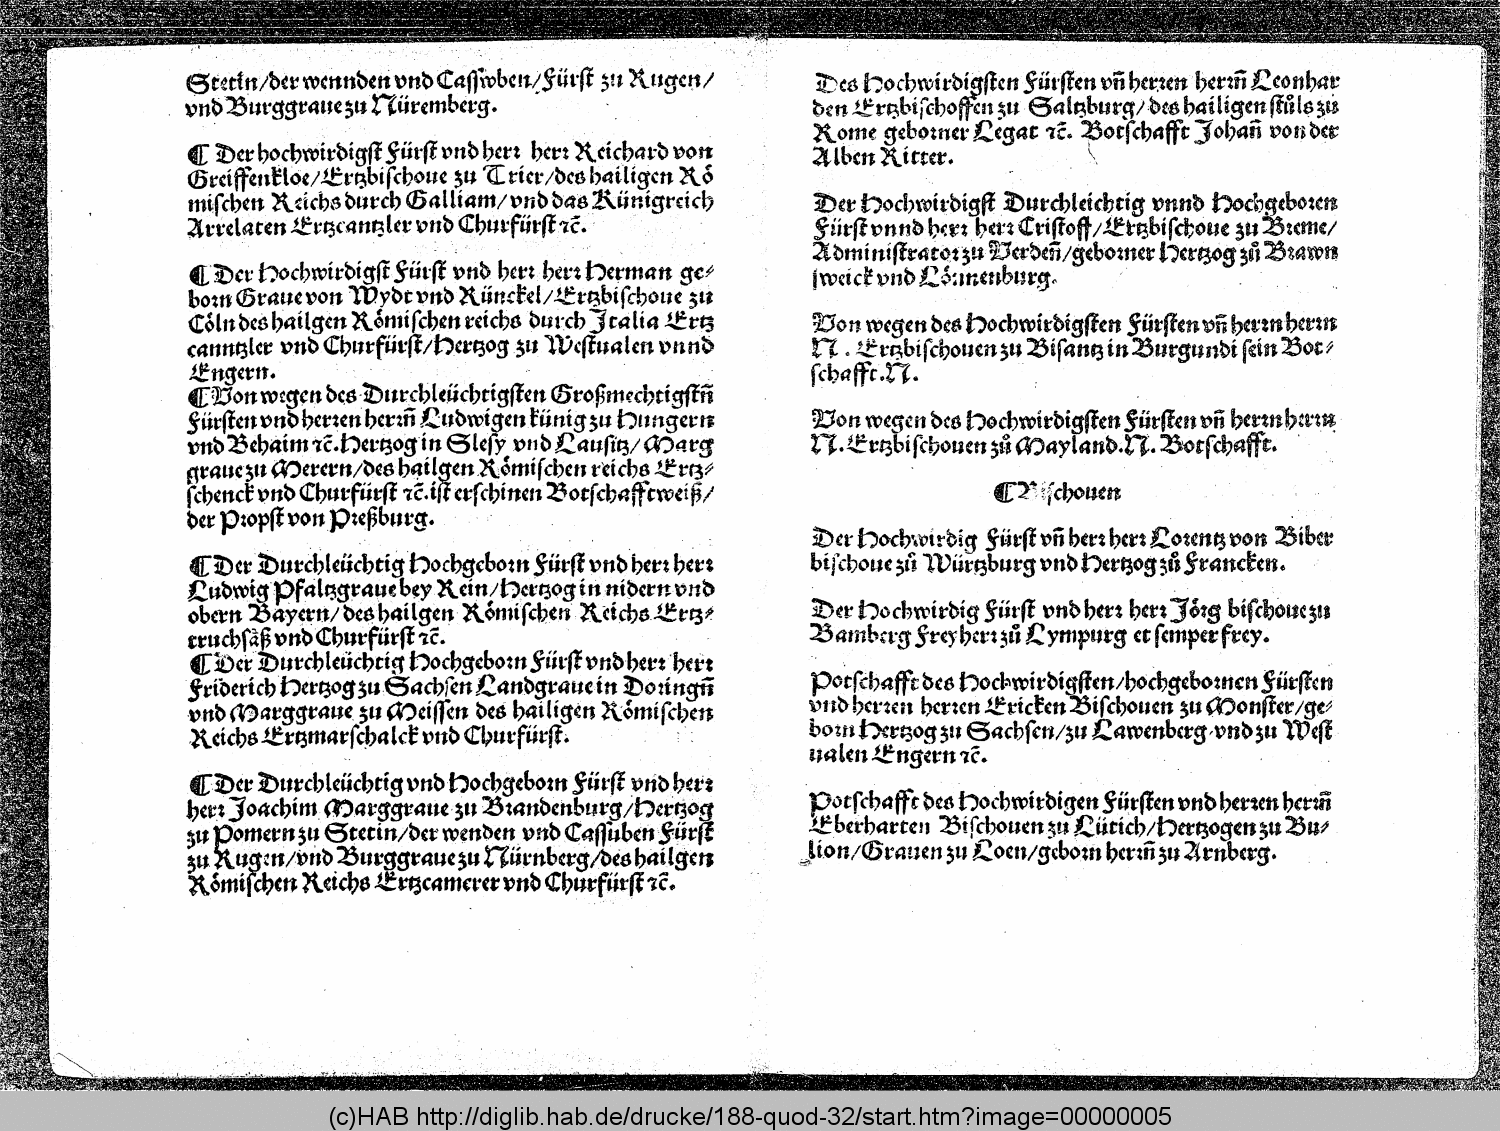 Stetin/der wennden vnd Casswben/Fürst zu Rugen/
vnd Burggraue zu Nüremberg.
¶ Der hochwirdigst Fürst vnd herꝛ herꝛ Reichard von
Greiffenkloe/Ertzbischoue zu Trier/des hailigen Rö
mischen Reichs durch Galliam/vnd das Künigreich
Arrelaten Ertzcantzler vnd Churfürst ⁊c̃.
¶ Der Hochwirdigst Fürst vnd herꝛ herꝛ Herman ge⸗
boꝛn Graue von Wydt vnd Rünckel/Ertzbischoue zu
Cöln des hailgen Römischen reichs durch Italia Ertz
canntzler vnd Churfürst/Hertzog zu Westualen vnnd
Engern.
¶ Von wegen des Durchleüchtigsten Großmechtigstñ
Fürsten vnd herꝛen herꝛñ Ludwigen künig zu Hungern
vnd Behaim ⁊c̃. Hertzog in Slesy vnd Lausitz/Marg
graue zu Merern/des hailgen Römischen reichs Ertz⸗
schenck vnd Churfürst ⁊c̃. ist erschinen Botschafftweiß/
der Pꝛopst von Pꝛeßburg.
¶ Der Durchleüchtig Hochgeboꝛn Fürst vnd herꝛ herꝛ
Ludwig Pfaltzgraue bey Rein/Hertzog in nidern vnd
obern Bayern/des hailgen Römischen Reichs Ertz⸗
truchsäß vnd Churfürst ⁊c̃.
¶ Der Durchleüchtig Hochgeboꝛn Fürst vnd herꝛ herꝛ
Friderich Hertzog zu Sachsen Landgraue in Doꝛingñ
vnd Marggraue zu Meissen des hailigen Römischen
Reichs Ertzmarschalck vnd Churfürst.
¶ Der Durchleüchtig vnd Hochgeboꝛn Fürst vnd herꝛ
herꝛ Joachim Marggraue zu Bꝛandenburg/Hertzog
zu Pomern zu Stetin/der wenden vnd Cassuben Fürst
zu Rugen/vnd Burggraue zu Nürnberg/des hailgen
Römischen Reichs Ertzcamerer vnd Churfürst ⁊c̃.
Des Hochwirdigsten Fürsten vñ herꝛen herꝛñ Leonhar
den Ertzbischoffen zu Saltzburg/des hailigen stůls zu
Rome geboꝛner Legat ⁊c̃. Botschafft Johañ von der
Alben Ritter.
Der Hochwirdigst Durchleichtig vnnd Hochgeboꝛen
Fürst vnnd herꝛ herꝛ Cristoff/Ertzbischoue zu Bꝛeme/
Administratoꝛ zu Verdeñ/geboꝛner Hertzog zů Bꝛawn
sweick vnd Lönnenburg.
Von wegen des Hochwirdigsten Fürsten vñ herꝛn herꝛn
N. Ertzbischouen zu Bisantz in Burgundi sein Bot⸗
schafft.N.
Von wegen des Hochwirdigsten Fürsten vñ herꝛn herꝛn
N. Ertzbischouen zů Mayland.N. Botschafft.
¶ Bischouen
Der Hochwirdig Fürst vñ herꝛ herꝛ Loꝛentz von Biber
bischoue zů Würtzburg vnd Hertzog zů Francken.
Der Hochwirdig Fürst vnd herꝛ herꝛ Jörg bischoue zu
Bamberg Freyherꝛ zů Lympurg et semper frey.
Potschafft des Hochwirdigsten/hochgeboꝛnen Fürsten
vnd herꝛen herꝛen Ericken Bischouen zu Monster/ge⸗
boꝛn Hertzog zu Sachsen/zu Lawenberg vnd zu West
ualen Engern ⁊c̃.
Potschafft des Hochwirdigen Fürsten vnd herꝛen herꝛñ
Eberharten Bischouen zu Lütich/Hertzogen zu Bu⸗
lion/Grauen zu Loen/geboꝛn herꝛñ zu Arnberg.
(c)HAB http://diglib.hab.de/drucke/188-quod-32/start.htm?image=00000005